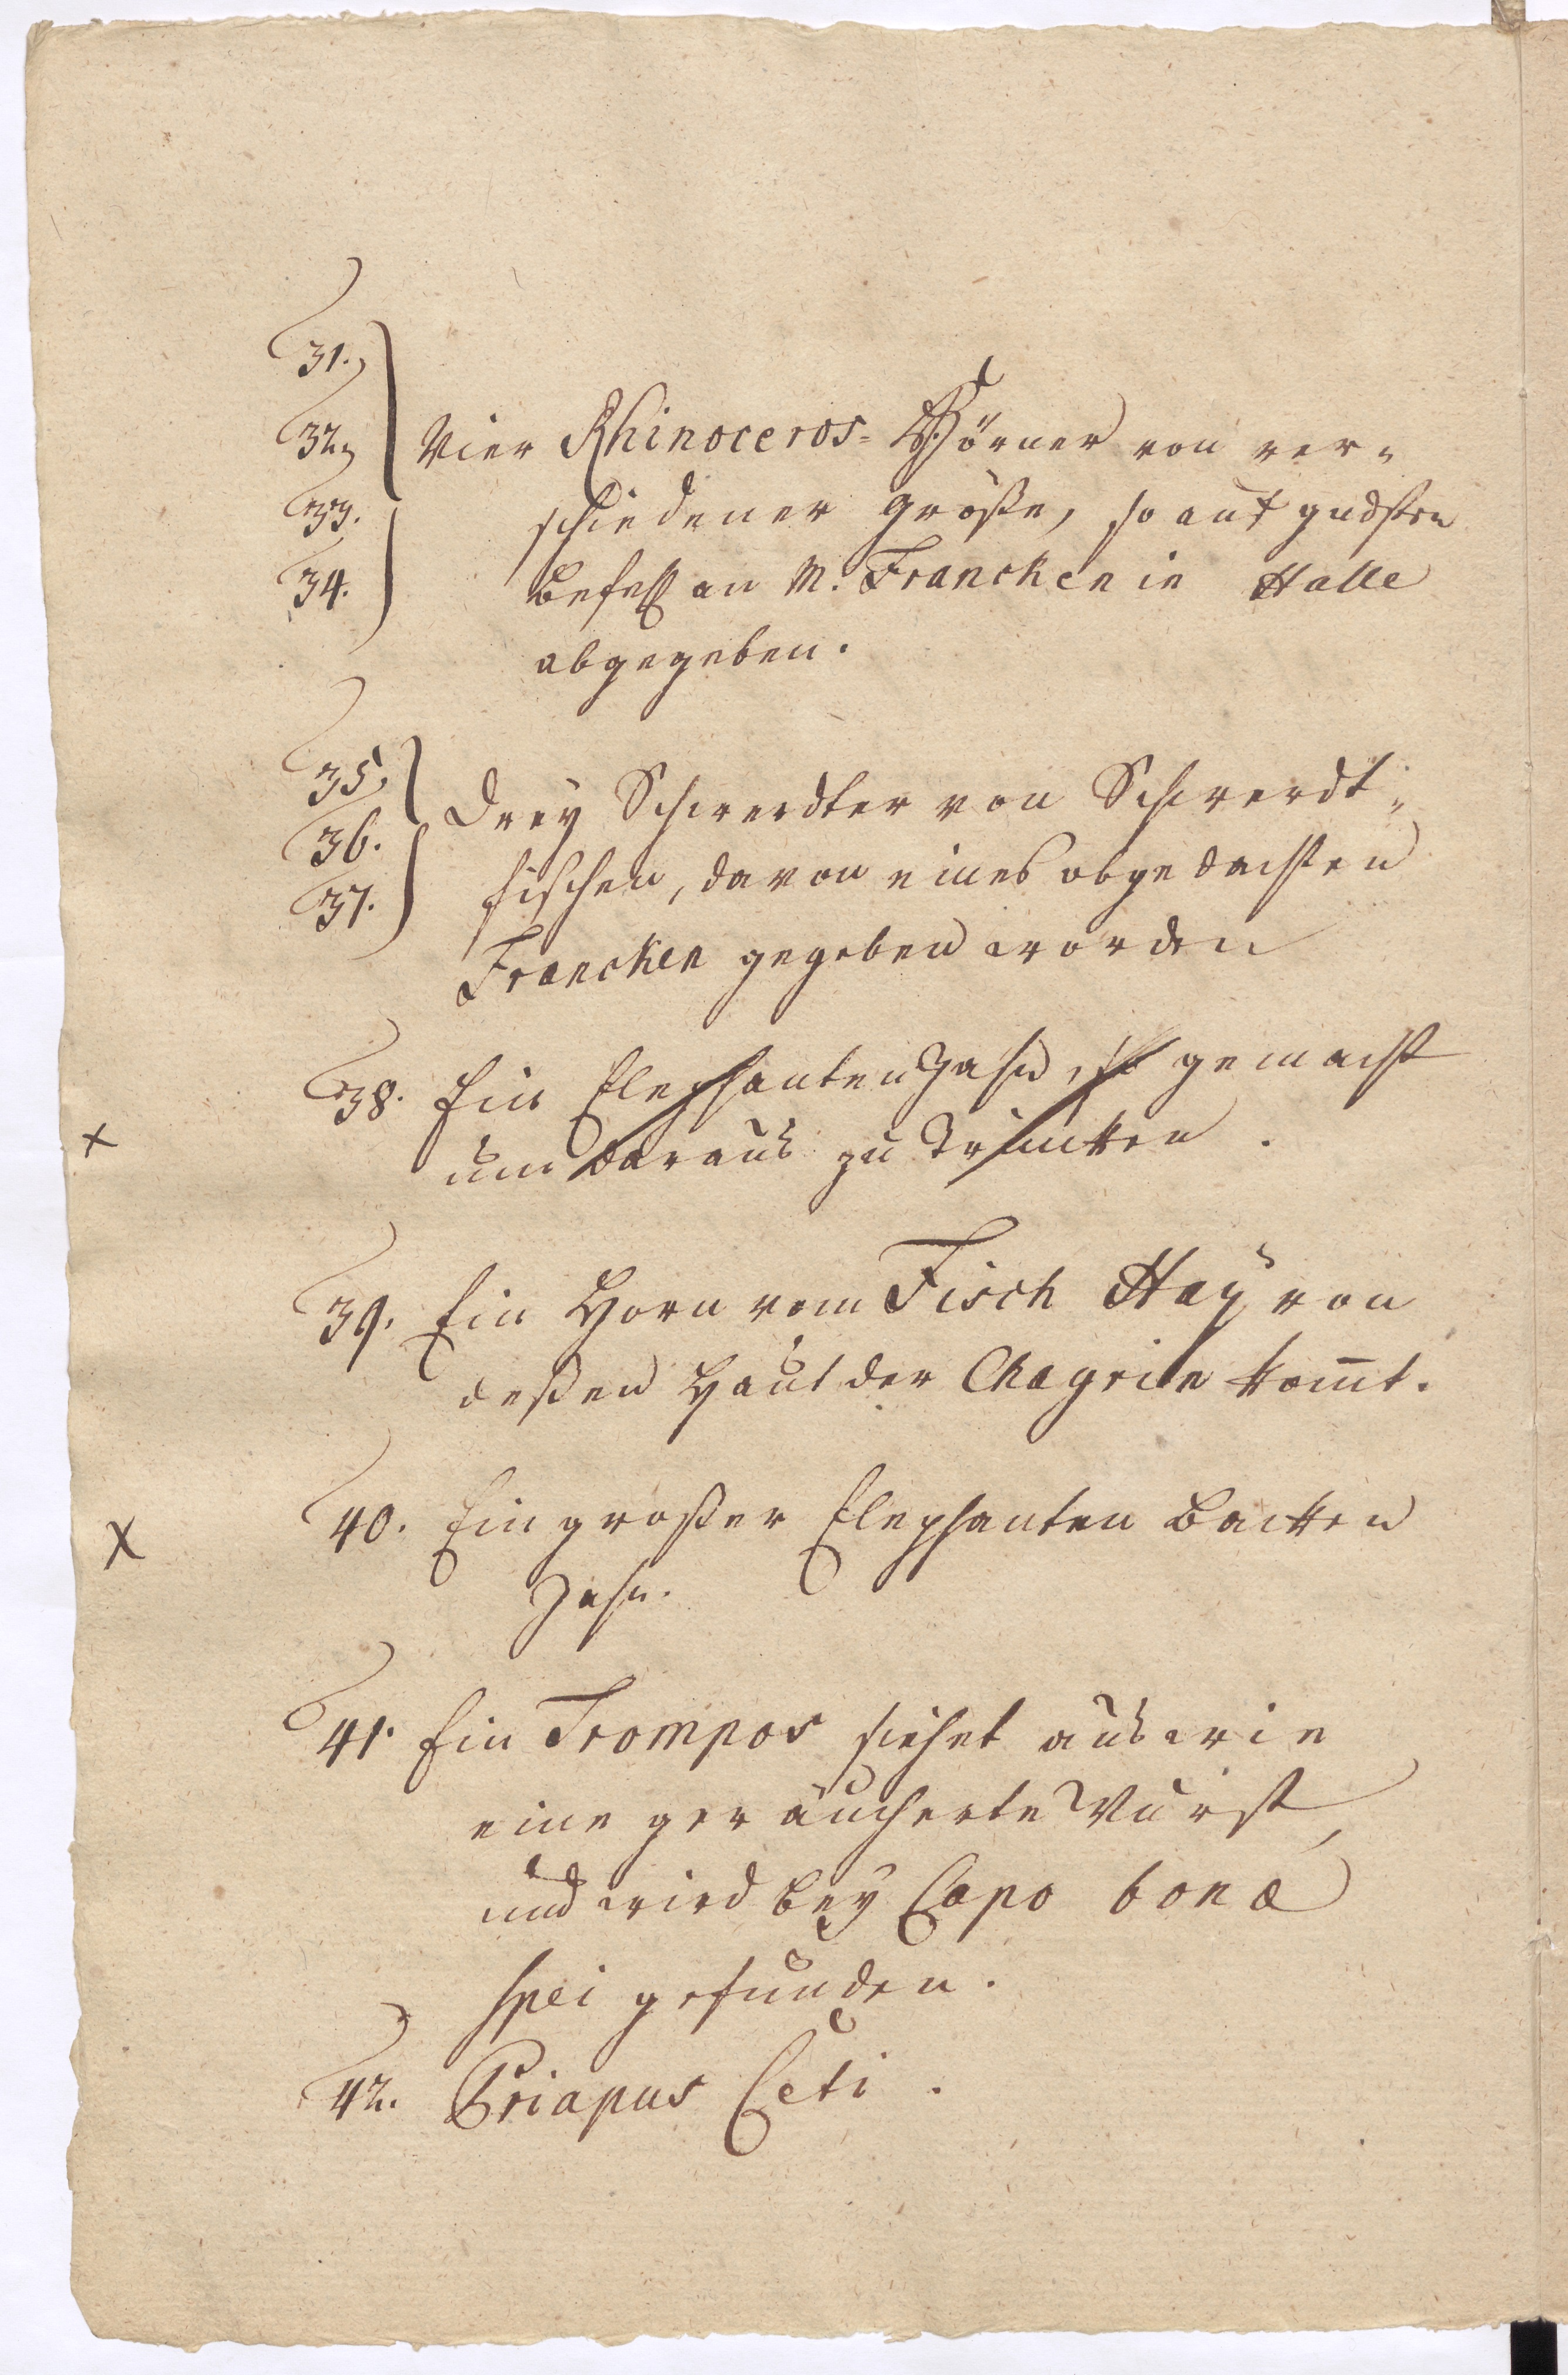 31.
32. Vier Rhinoceros-Hörner von ver-
33. schiedener größe, so auf gndsten
34. Befehl an M. Francken in Halle
abgegeben.
35. Drey Schwerdter von Schwerdt-
36. fischen, davon eines obgedachten
37. Francken gegeben worden
38. Ein Elephanten Zahn, so gemacht
x um daraus zu Trincken.
39. Ein Horn vom Fisch Haÿ von
deßen Haut der Chagrin kom̅t.
x 40. Ein großer Elephanten Backen
Zahn.
41. Ein Trompos siehet aus wie
eine geräucherte Wurst,
und wird beÿ Capo bonæ
spei gefunden.
42. Priapus Ceti.